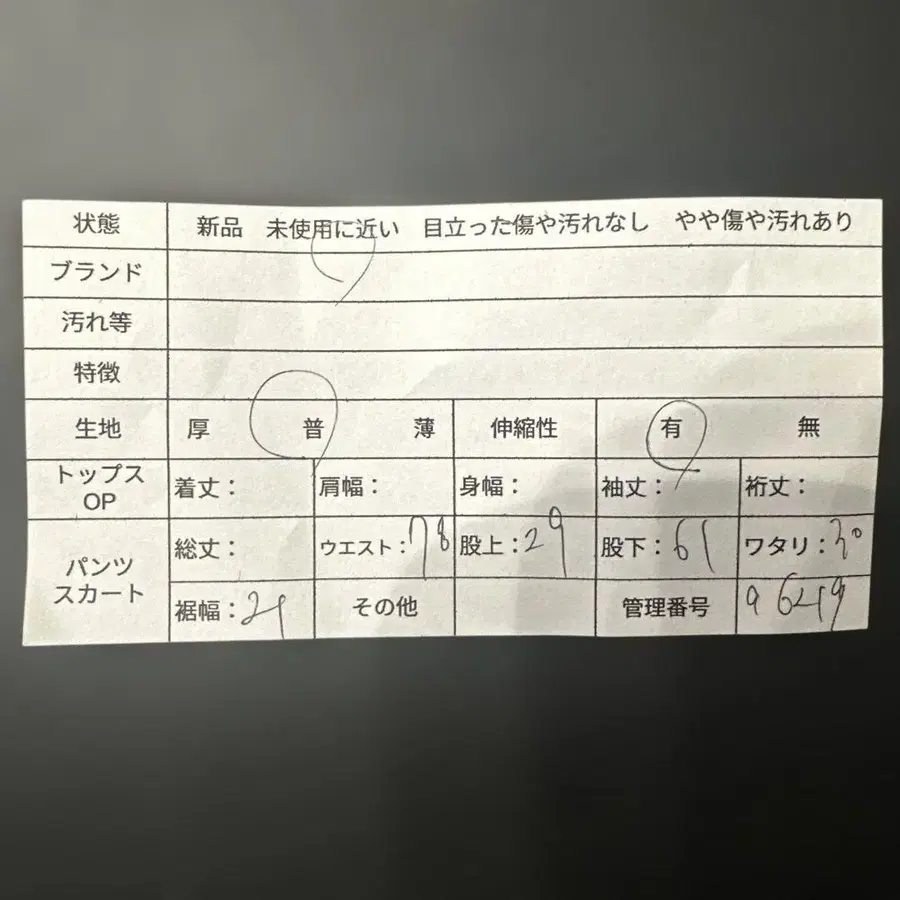 状態 新品 未使用に近い 目立った傷や汚れなし やや傷や汚れあり
ブランド
汚れ等
特徴
生地 厚 普 薄 伸縮性 有 無
トップス OP 着丈: 肩幅: 身幅: 袖丈: 裄丈:
パンツ スカート 総丈: ウエスト:78 股上:29 股下:61 ワタリ:30
裾幅:21 その他 管理番号